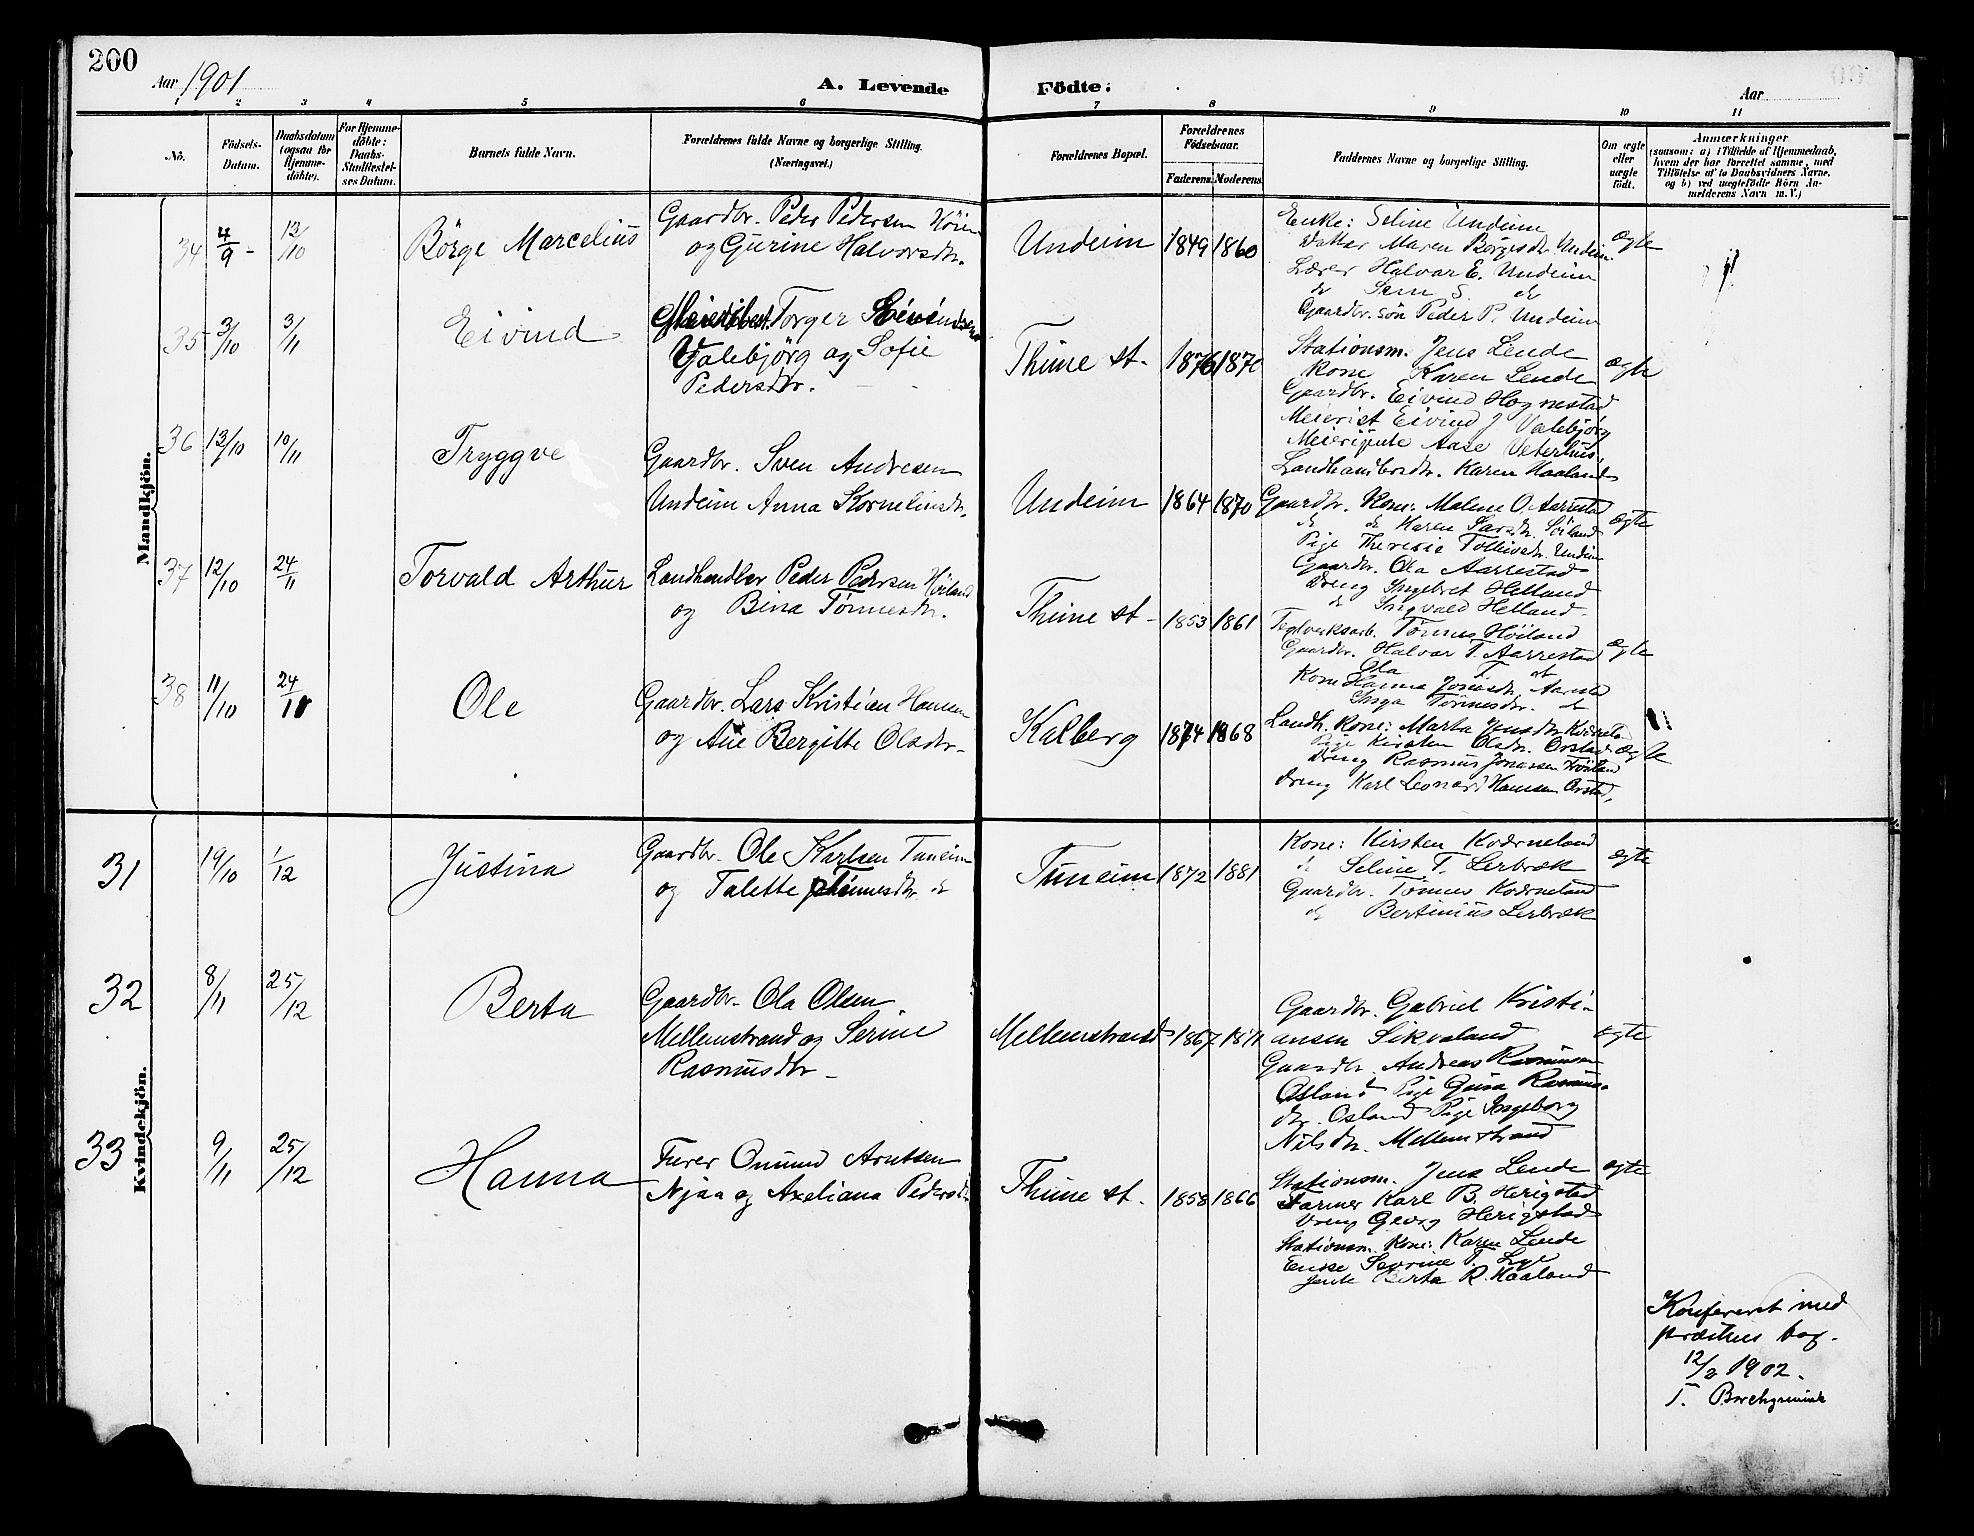 200
Aar 1901
A. Levende Födte.
Aar
1 2 3 4 5 6 7 8 9 10 11
No.
Födsels-
Datum.
Daabsdatum
(ogsaa for
Hjemme-
døbte).
For Hjemme-
döbte:
Daabs-
Stadfæstel-
ses Datum.
Barnets fulde Navn.
Forældrenes fulde Navne og borgerlige Stilling.
(Næringsvei.)
Forældrenes Bopæl.
Forældrenes
Födselsaar.
Faderens. Moderens.
Faddernes Navne og borgerlige Stilling.
Om ægte
eller
uægte
födt.
Anmærkninger
(saasom: a) i Tilfælde af Hjemmedaab,
hvem der har forrettet samme, med
Tilföielse af to Daabsvidners Navne,
og b) ved uægtefödte Börn An-
melderens Navn m. V.)
Mandkjön.
34 4/9 - 13/10 Börge Marcelius
Gaardbr. Peder Pedersen
og Gurine Halvorsdtr.
Undeim 1849 1860
Enke: Seline Undeim
Datter Maren Börgesdr. Undeim.
Lærer Halvar E. Undeim
do Sem S. do
Gaardbr. sön Peder P. Undeim
ægte
35 3/10 3/11 Eivind
Torger Eivindsen
Valebjörg og Sofie
Pedersdtr.
Thime st. 1876 1870
Stationsm. Jens Lende
Kone Karen Lende
Gaardbr. Eivind Hognestad
Meierist Eivind J Valebjörg
Aase Veterhus,
Karen Haaland
ægte
36 13/10 10/11 Tryggve
Gaardbr. Sven Andresen
Undeim Anna Korneliusdtr.
Undeim 1864 1870
Gaardbr. Kone: Malene O. Aarrestad
do do Karen Larsdr. Söiland
Pige Theresie Tollivsdr. Undeim
Gaardbr. Ola Aarrestad
Dreng Ingebret Helland
do Ingvald Helland
ægte
37 12/10 24/11 Torvald Arthur
Landhandler Peder Pedersen Höiland
og Bina Tönnesdtr.
Thime st - 1853 1861
Teglverksarb. Tönnes Höiland
Gaardbr. Halvar T. Aarrestad
Ola T. do
Kone Hanna Jonasdtr. Aarrestad
Inga Tönnesdtr. do
ægte
38 11/10 24/11 Ole
Gaardbr. Lars Kristian Hansen
og Ane Bergitte Olsdtr.
Kalberg 1874 1868
Landh. kone: Marta Jensdtr Kværneland
Pige Kirsten Olsdr. Orstad
Dreng Rasmus Jonassen Höiland
Dreng Karl Leonard Hansen Orstad,
ægte
Kvindekjön.
31 19/10 1/12 Justina
Gaardbr. Ole Karlsen Tuneim
og Talette Tönnesdtr. do
Tuneim 1872 1881
Kone: Kirsten Kværneland
do Seline T. Lerbræk
Gaardbr. Tönnes Kværneland
do Bertinius Lerbræk
ægte
32 8/11 25/12 Berta
Gaardbr. Ola Olsen
Mellemstrand og Serine
Rasmusdtr -
Mellemstrand 1867 1871
Gaardbr. Gabriel Kristi-
ansen Sikvaland
Gaardbr. Andreas Rasmussen
Osland Pige Gina Rasmus-
dtr. Osland Pige Ingeborg
Nilsdtr. Mellemstrand
ægte
33 9/11 25/12 Hanna
Furer Omund Arntsen
Njaa og Axeliana Pedersdtr.
Thime st. 1858 1866
Stationsm. Jens Lende
Farmer Karl B. Herigstad
Dreng Georg Herigstad
Stationsm. Kone: Karen Lende
Enke Sevrine T. Lye
Jente Berta R. Haaland
ægte
Konfereret med
præstens bog.
12/2 1902.
T.